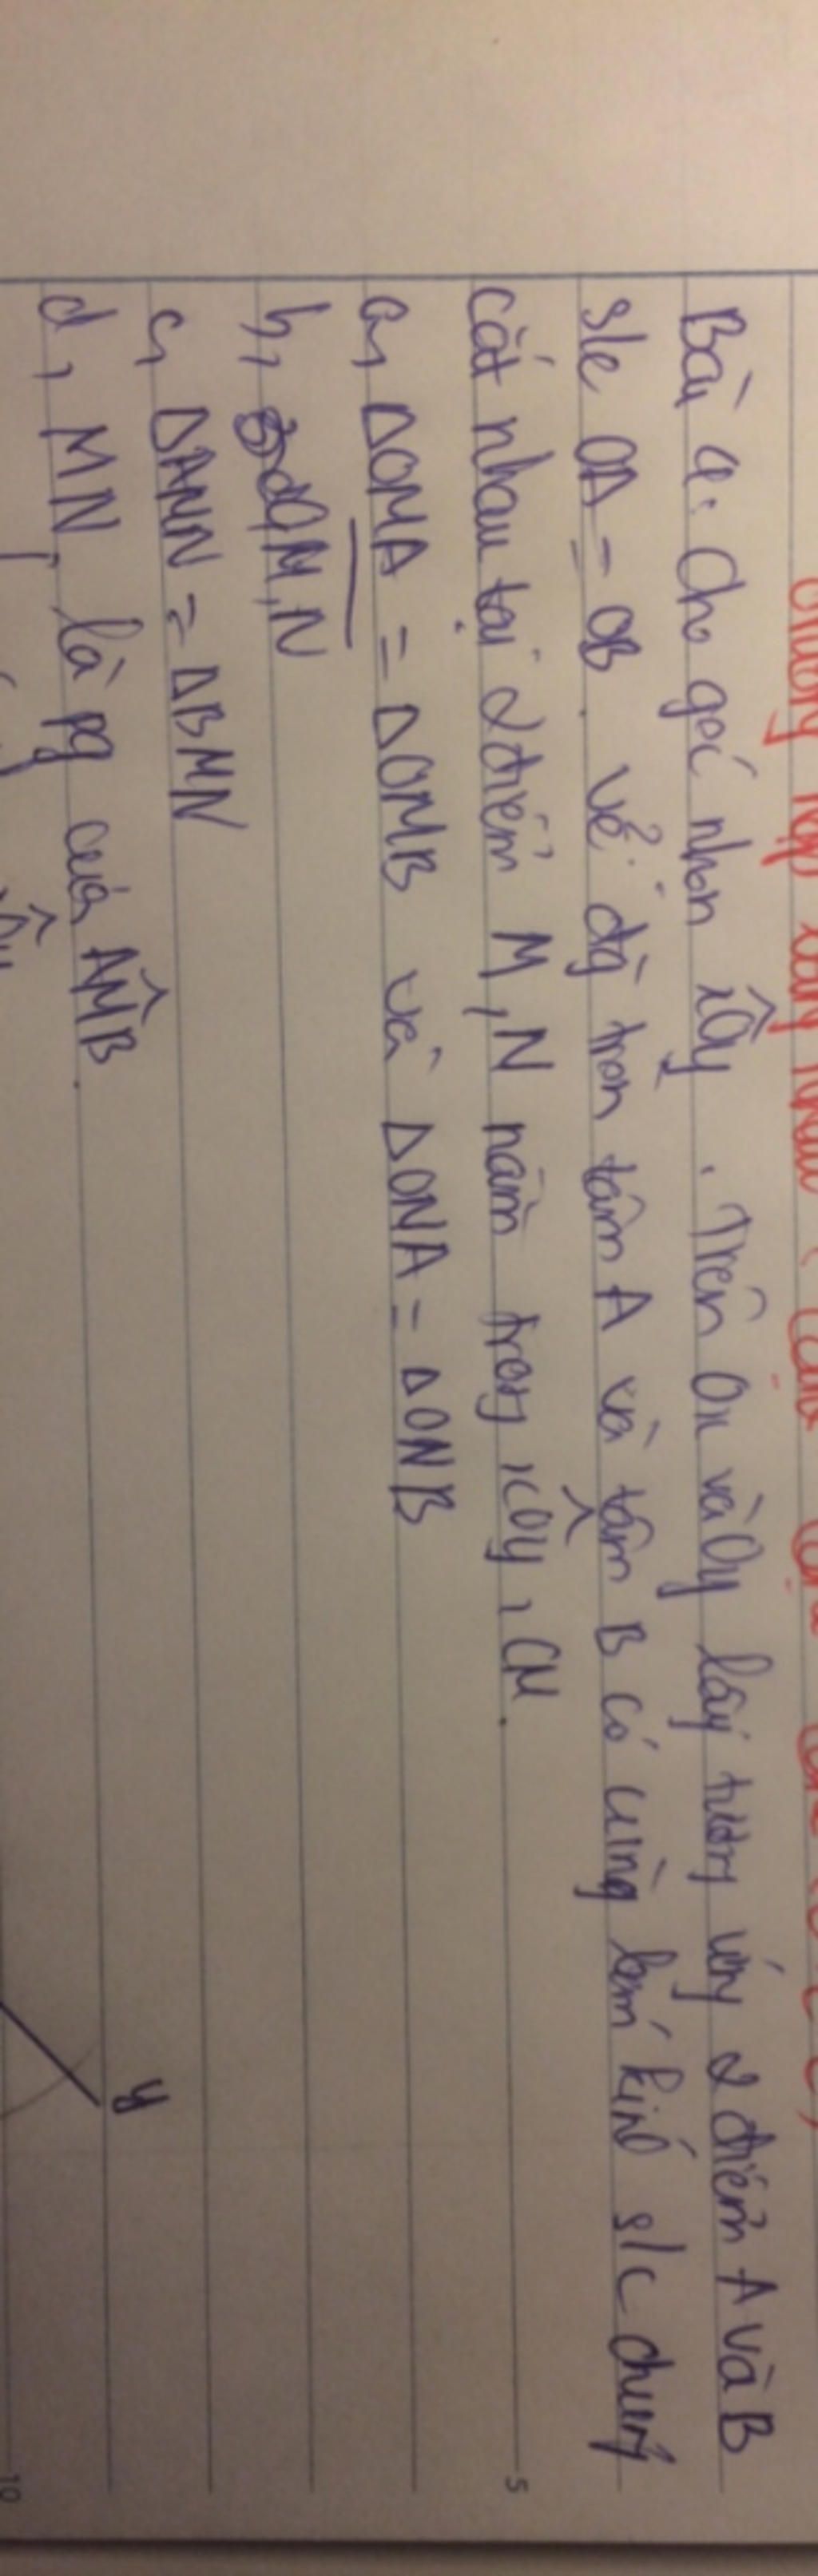 Bài 4: Cho goć nhọn xÔy. Trên Ox và Oy lấy tương ứng 2 điểm A và B
s/c OA = OB. Vẽ đg tròn tâm A và tâm B có cùng bán kính s/c chúng
cắt nhau tại 2 điểm M, N nằm trong xÔy, CM.
a, ΔOMA = ΔOMB và ΔONA = ΔONB
b, M, N
c, ΔAMN = ΔBMN
d, MN là pg của AM̂B.
y
5
10